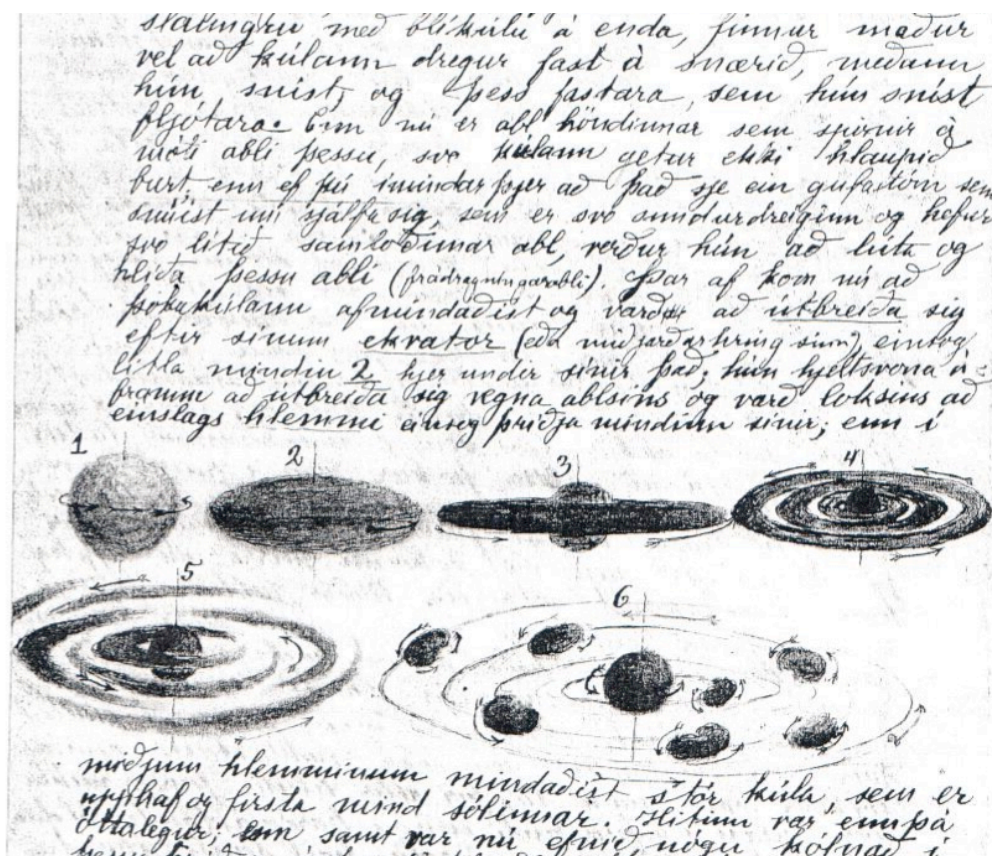 stálingru með blíkúlu á enda, finnur maður
vel að kúlann dregur fast á snærið, meðann
hún sníst, og þess fastara, sem hún sníst
fljótara. Enn nú er abl höndinnar sem spirnir á
móti abli þessu, svo kúlann getur ekki hlaupið
burt, enn ef þú ímindar þjer að það sje ein gufastórn sem
snúist um sjálfa sig, sem er svo sundurdreiginn og hefur
svo lítið samloðunar abl, verður hún að lúta og
hlíða þessu abli (frádregningarabli). Þar af kom nú að
þokukúlann afmindaðist og varð að útbreiða sig
eftir sínum ekvator (eða miðjarðarhring sinn), einsog
litla mindin 2 hjer under sínir það; hún hjelt svona á-
framm að útbreiða sig vegna ablsins og varð loksins að
einslags hlemmi einsog þriðja mindinn sínir; enn í
1 2 3 4
5 6
miðjum hlemminum mindaðist stór kúla, sem er
upphaf og firsta mind sólinnar. Hitinn var ennþá
óttalegur; enn samt var nú efnið nógu kólnað í